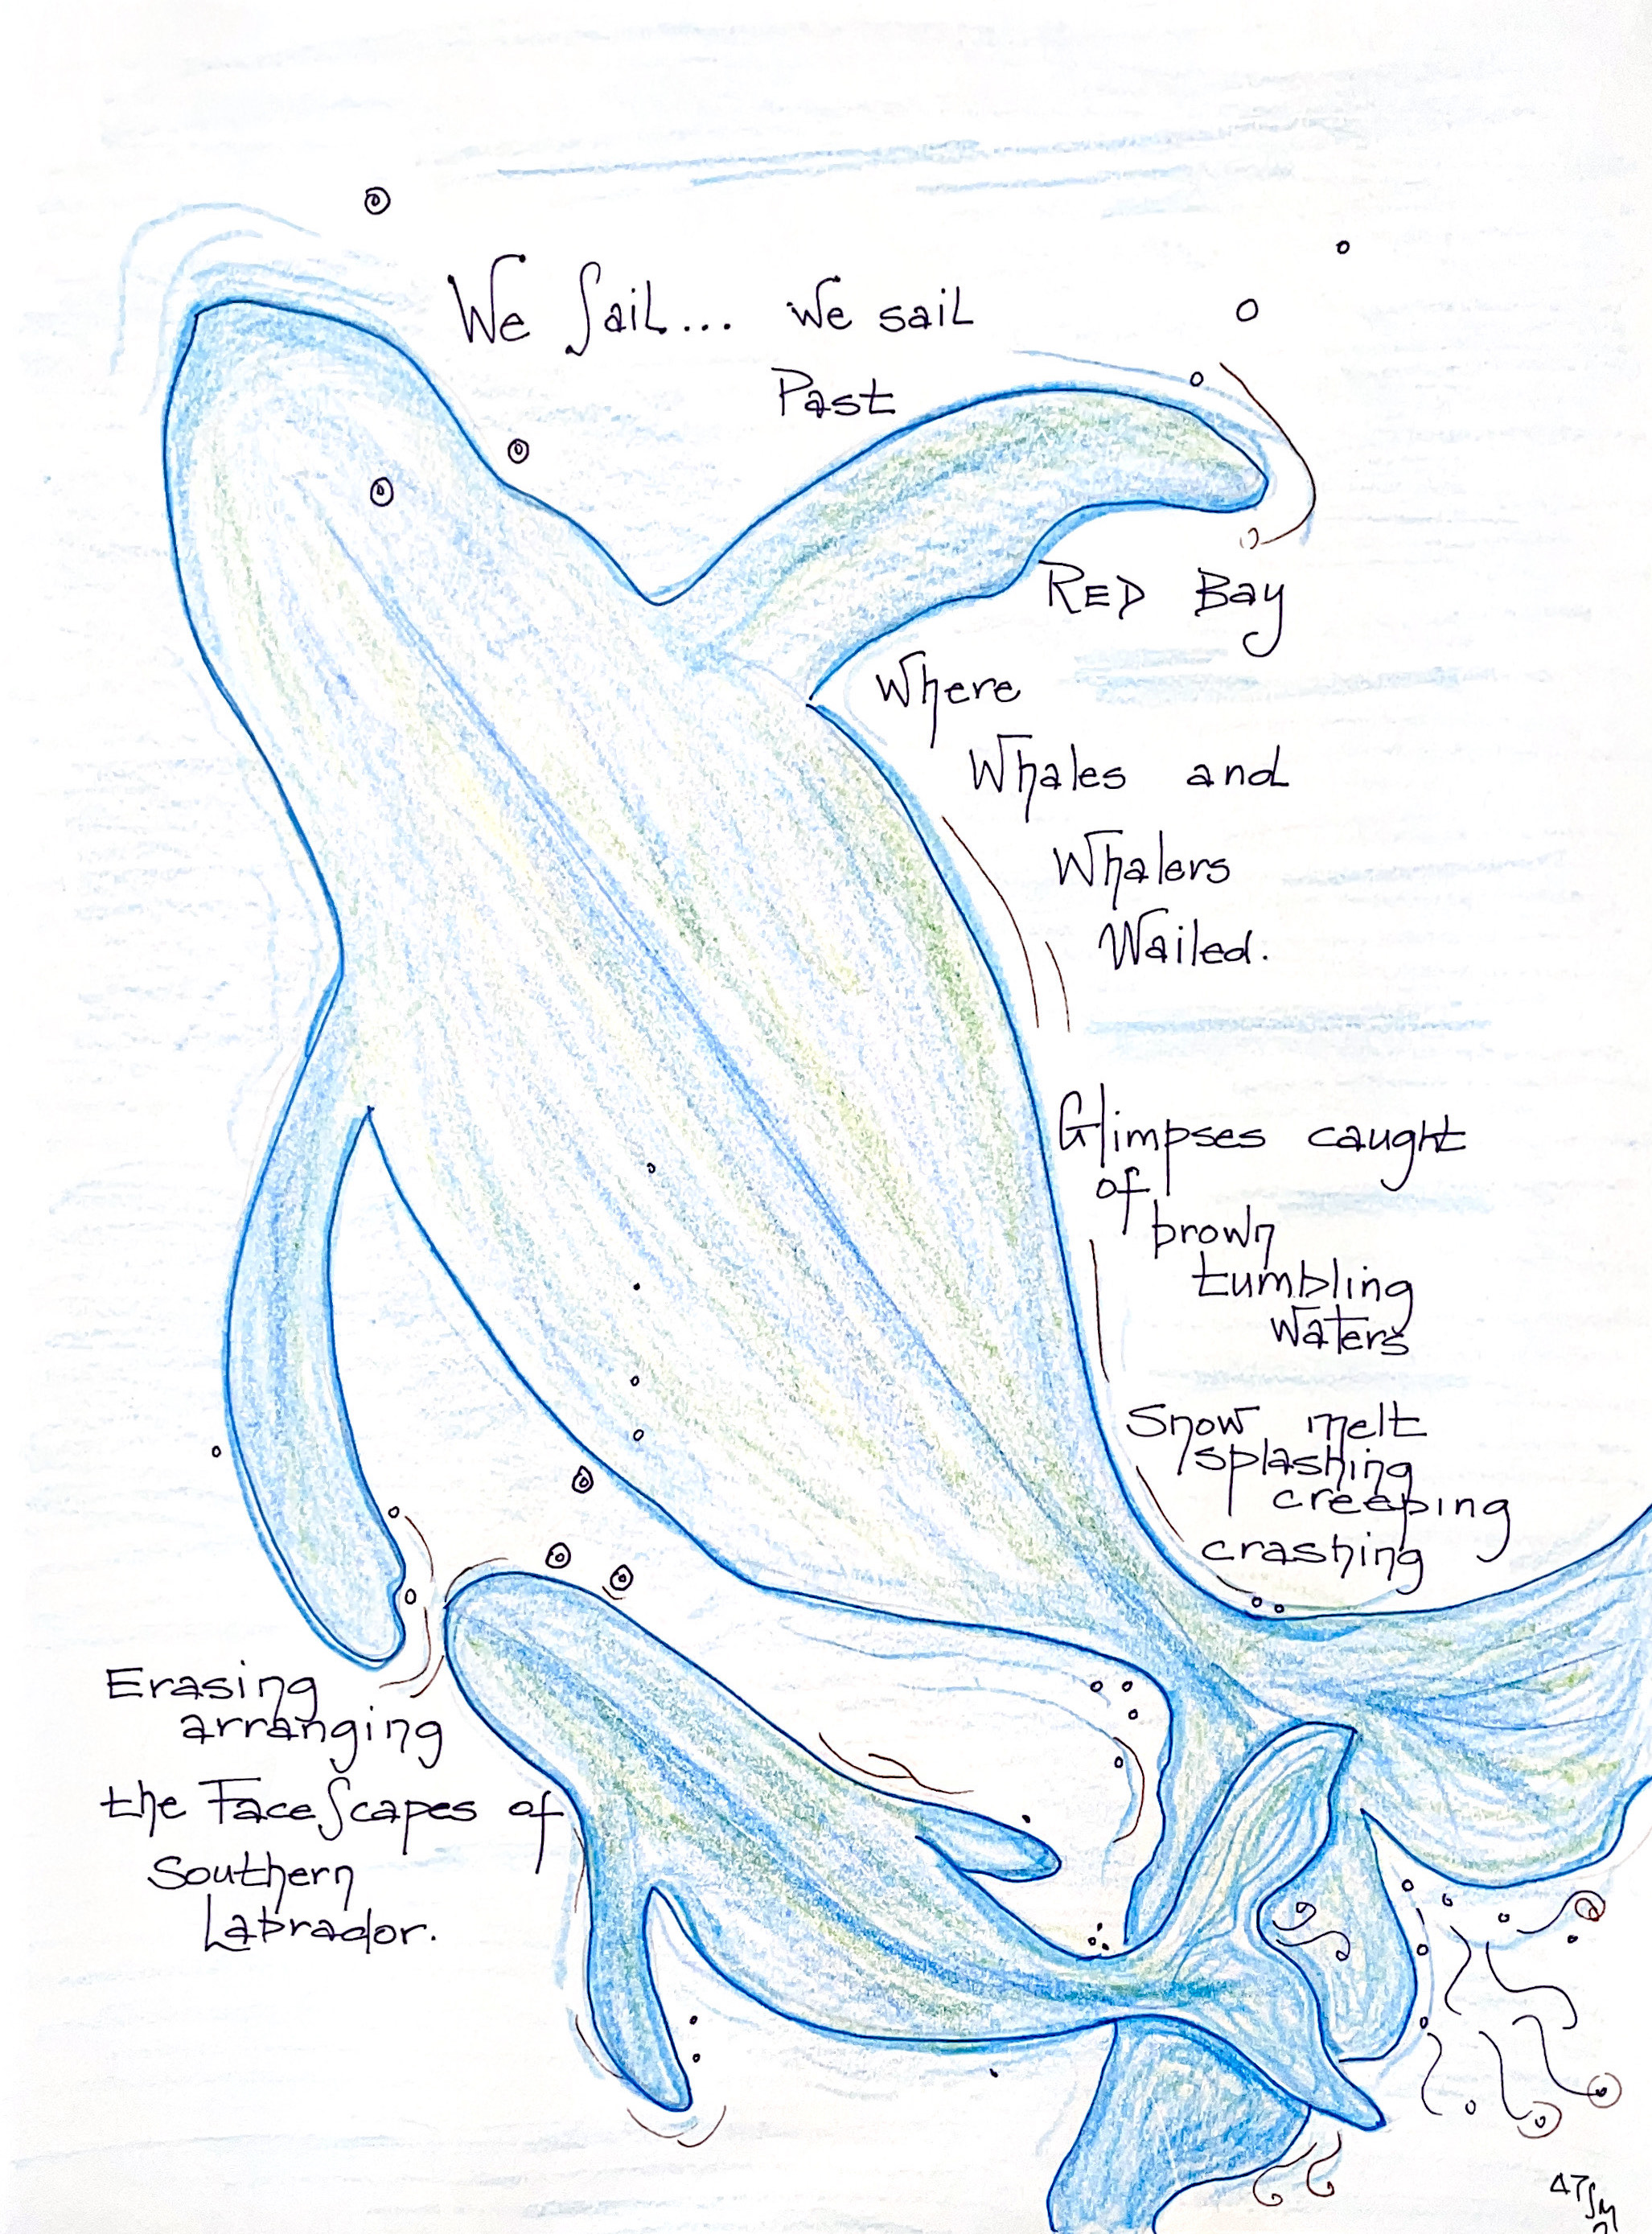 We Sail... We sail
Past
RED Bay
Where
Whales and
Whalers
Wailed.
Glimpses caught
of
brown
tumbling
Waters
Snow melt
splashing
creeping
crashing
Erasing
arranging
the FaceScapes of
Southern
Labrador.